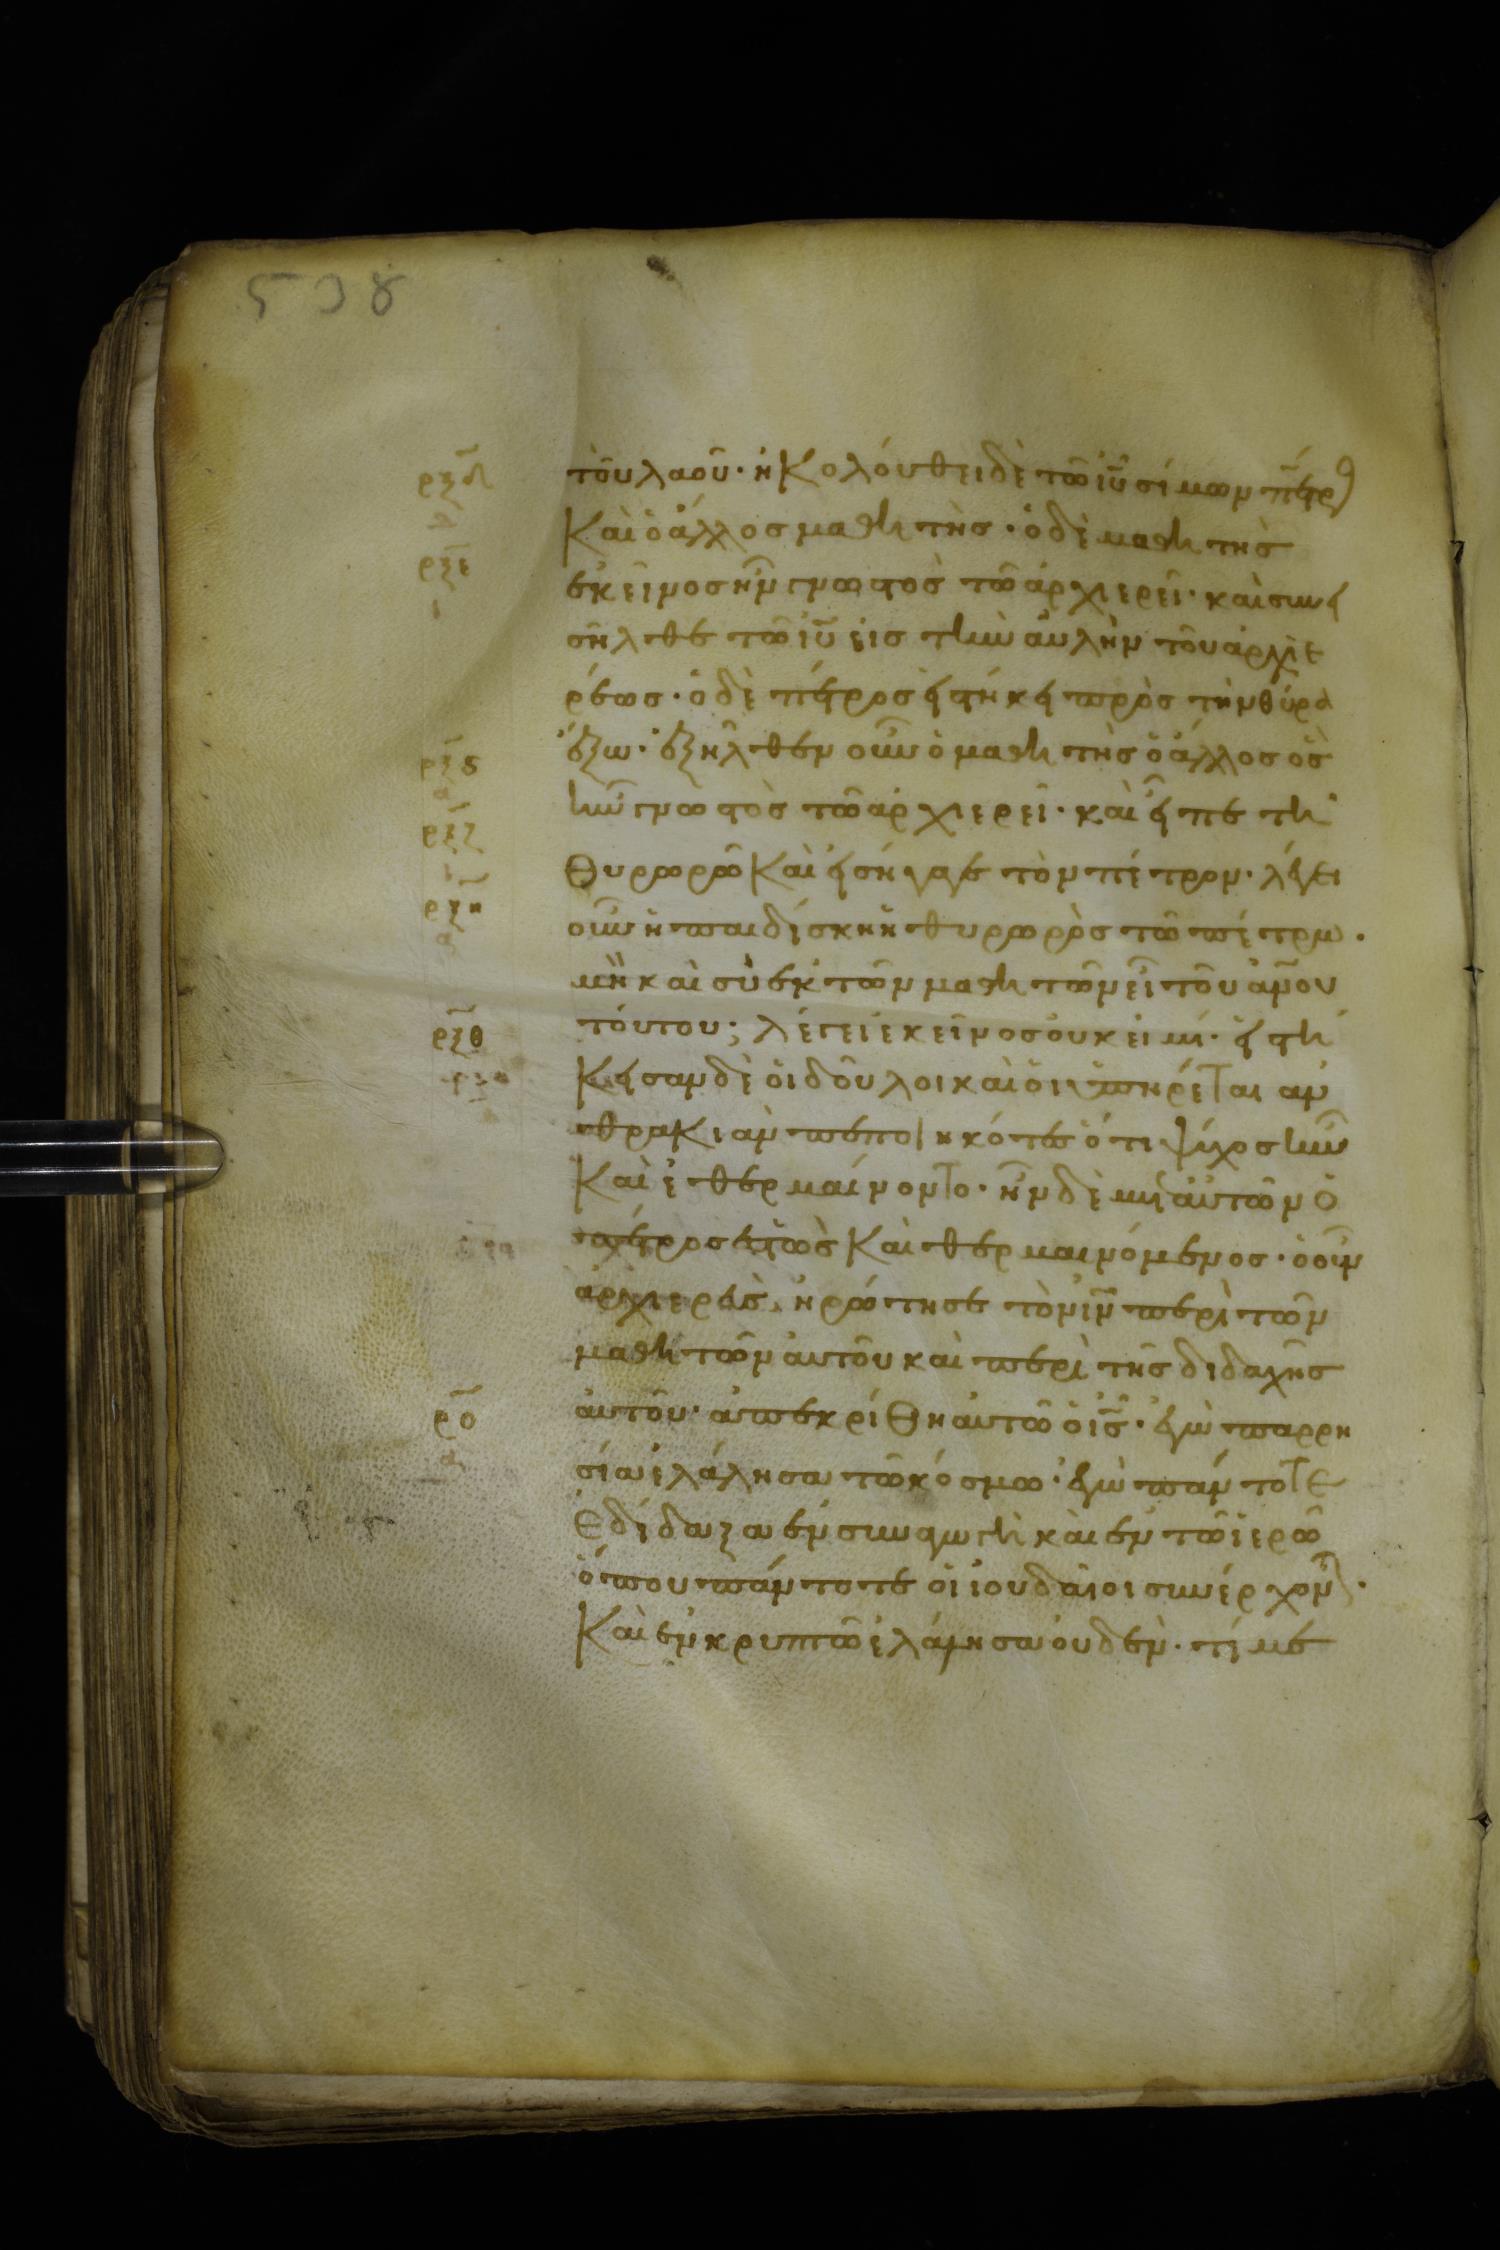 508
ρξδ τοῦ λαοῦ· ἠκολούθει δὲ τῶ ἰῦ σίμων πέτρ
καὶ ὁ ἄλλος μαθητὴς· ὁ δὲ μαθητὴς
ρξε ἐκεῖνος ἦν γνωστὸς τῶ ἀρχιερεῖ· καὶ συνει
σῆλθε τῶ ἰῦ εἰς τὴν αὐλὴν τοῦ ἀρχιε
ρέως· ὁ δὲ πέτρος εἱστήκει πρὸς τὴν θύρα
ρξς ἔξω· ἐξῆλθεν οὖν ὁ μαθητὴς ὁ ἄλλος ὃς
ρξζ ἦν γνωστὸς τῶ ἀρχιερεῖ· καὶ εἶπε τῆ
θυρωρῶ καὶ εἰσήγαγε τὸν πέτρον· λέγει
ρξη οὖν ἡ παιδίσκη ἡ θυρωρὸς τῶ πέτρω·
μὴ καὶ σὺ ἐκ τῶν μαθητῶν εἶ τοῦ ἀνου
ρξθ τούτου; λέγει ἐκεῖνος οὐκ εἰμί· εἱστή
κεισαν δὲ οἱ δοῦλοι καὶ οἱ ὑπηρέται αν
θρακιὰν πεποιηκότες ὅτι ψύχος ἦν
καὶ ἐθερμαίνοντο· ἦν δὲ μετ αὐτῶν ὁ
πέτρος ἑστὼς καὶ θερμαινόμενος· ὁ οὖν
ἀρχιερεὺς ἠρώτησε τὸν ἰν περὶ τῶν
μαθητῶν αὐτοῦ καὶ περὶ τῆς διδαχῆς
ρο αὐτοῦ· ἀπεκρίθη αὐτῶ ὁ ἰς· ἐγὼ παρρη
α σία ἐλάλησα τῶ κόσμω· ἐγὼ πάντοτε
ἐδίδαξα ἐν συναγωγῆ καὶ ἐν τῶ ἱερῶ
ὅπου πάντοτε οἱ ἰουδαῖοι συνέρχον·
καὶ ἐν κρυπτῶ ἐλάλησα οὐδεν· τί με